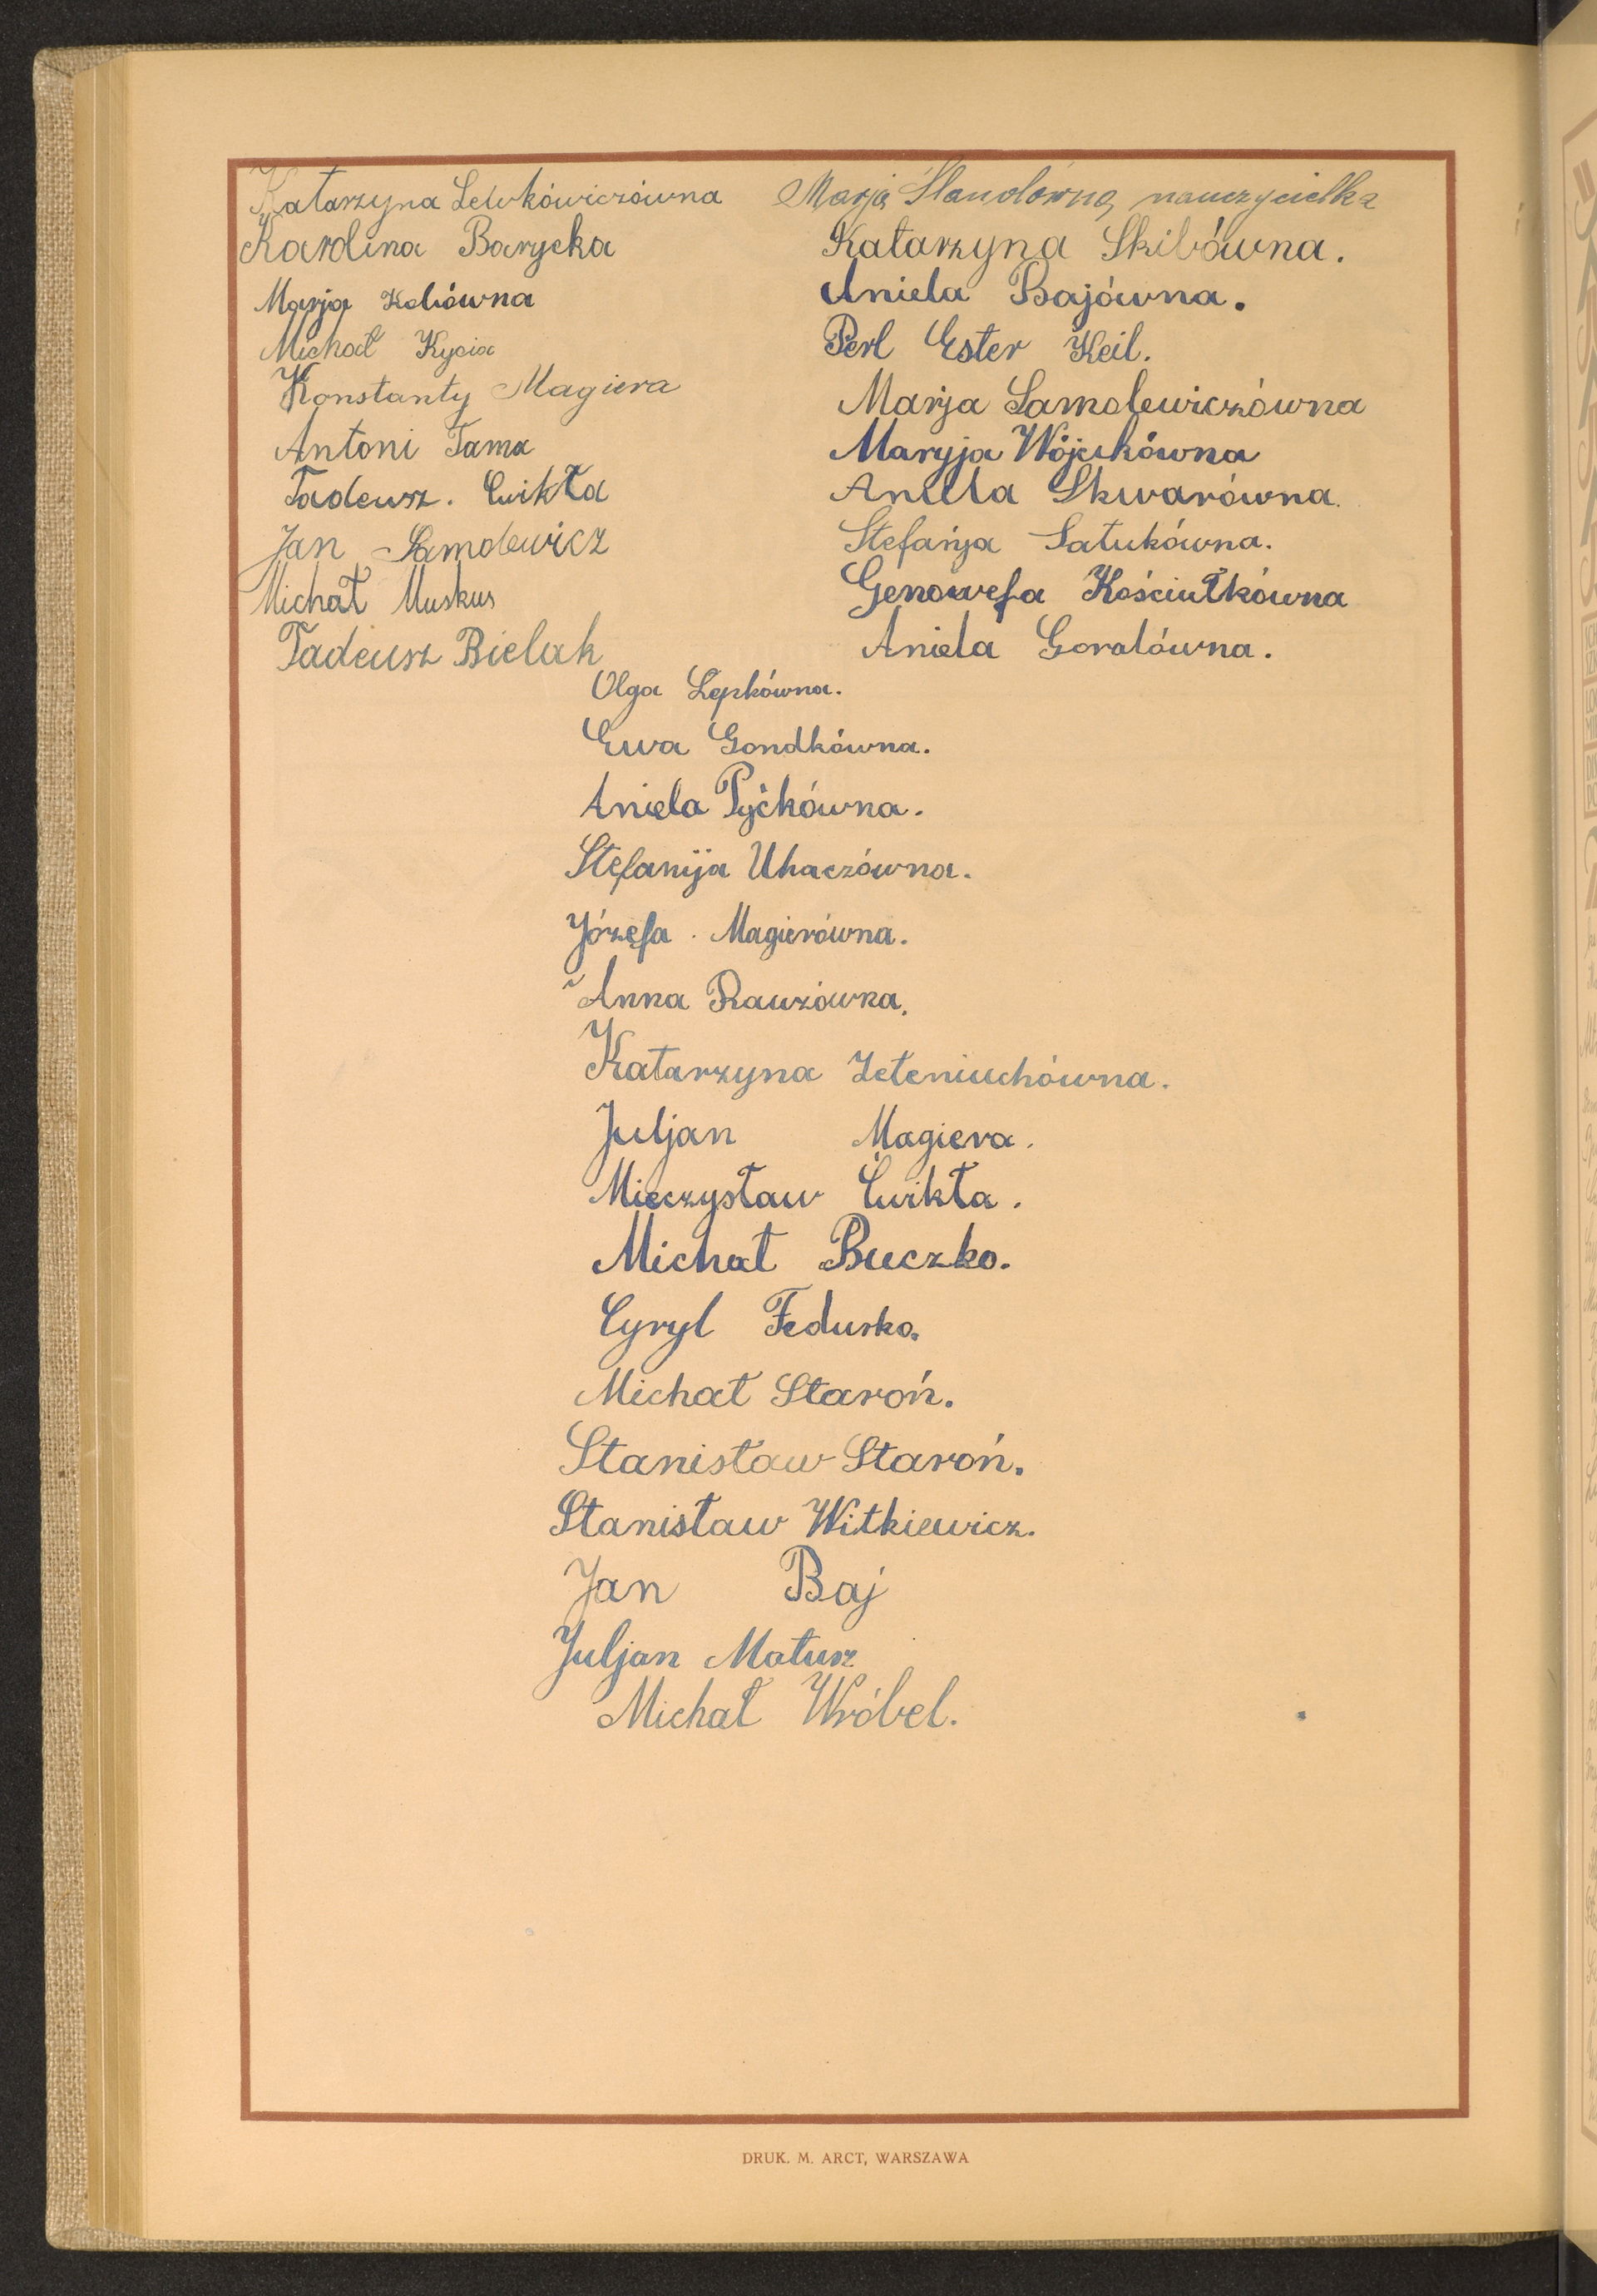 Katarzyna Lewkówiczówna
Karolina Barycka
Marja Kobówna
Michał Kycia
Konstanty Magiera
Antoni Tama
Tadeusz. Cwikła
Jan Samolewicz
Michał Muskus
Tadeusz Bielak
Marja nauczycielka
Katarzyna Skibówna.
Aniela Bajówna.
Perl Ester Keil.
Marja Samolewiczówna
Maryja Wójcikówna
Aniela Skwarówna.
Stefanja Satukówna.
Genowefa Kościułkówna
Aniela Goralówna.
Olga Lepkówna.
Ewa Gondkówna.
Aniela Pyćkówna.
Stefanija Uhaczówna.
Józefa Magierówna.
Anna Rawzówna.
Katarzyna Zeteniuchówna.
Juljan Magiera.
Mieczysław Ćwikła.
Michał Buczko.
Cyryl Fedusko.
Michał Staroń.
Stanisław Staroń.
Stanisław Witkiewicz.
Jan Baj
Juljan Matusz
Michał Wróbel.
DRUK. M. ARCT, WARSZAWA